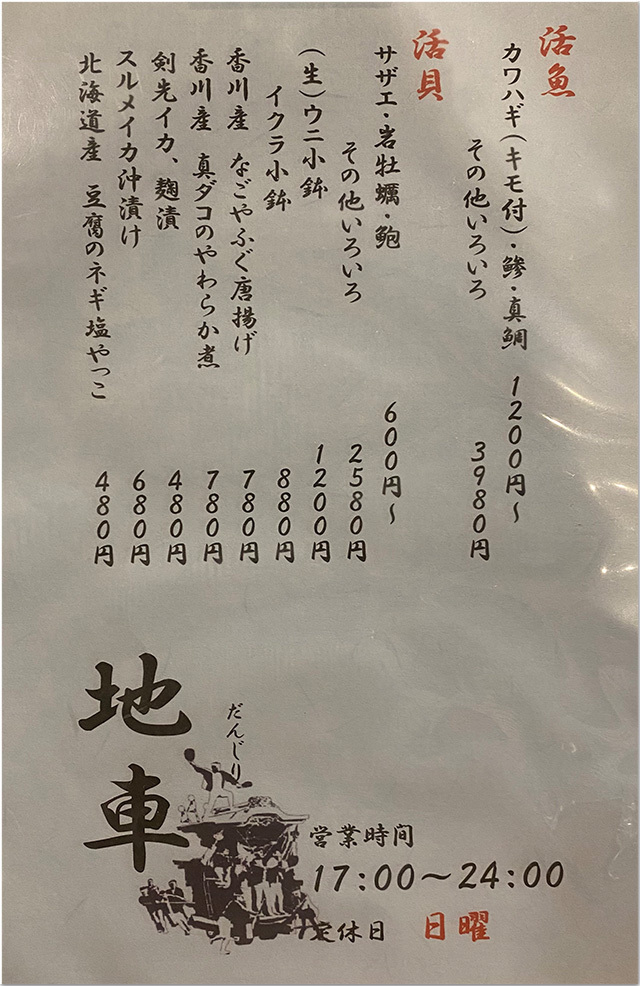 活魚
カワハギ(キモ付)・鯵・真鯛　1200円～
その他いろいろ　3980円
活貝
サザエ・岩牡蠣・鮑　600円～
その他いろいろ　2580円
(生)ウニ小鉢　1200円
イクラ小鉢　880円
香川産　なごやふぐ唐揚げ　780円
香川産　真ダコのやわらか煮　780円
剣先イカ、麹漬　480円
スルメイカ沖漬け　680円
北海道産　豆腐のネギ塩やっこ　480円
だんじり
地車
営業時間
17:00～24:00
定休日　日曜